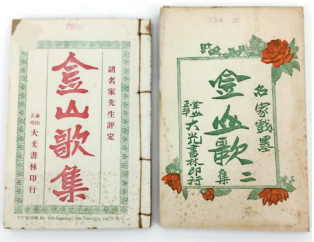 諸名家先生評定
金山歌集
金山
正埠
大光書林印行
名家戲墨
金山歌二集
金山
正埠
大光書林印行